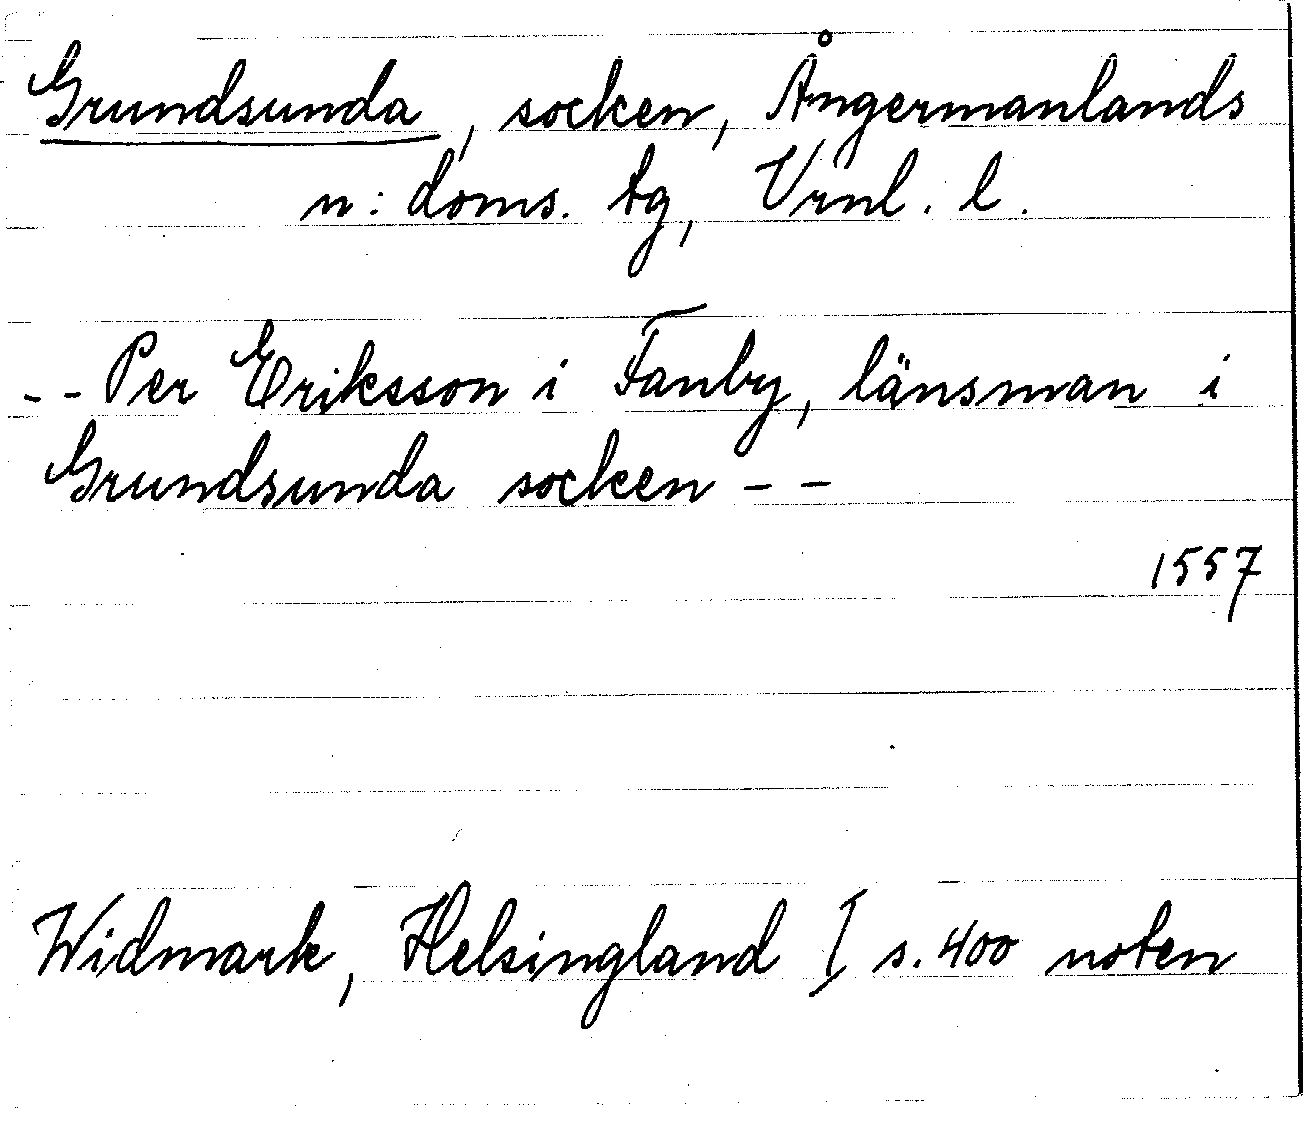 Grundsunda, socken, Ångermanlands
n: doms. tg, Vrnl. l.
-- Per Eriksson i Fanby, länsman i
Grundsunda socken --
1557
Widmark, Helsingland I s. 400 noten